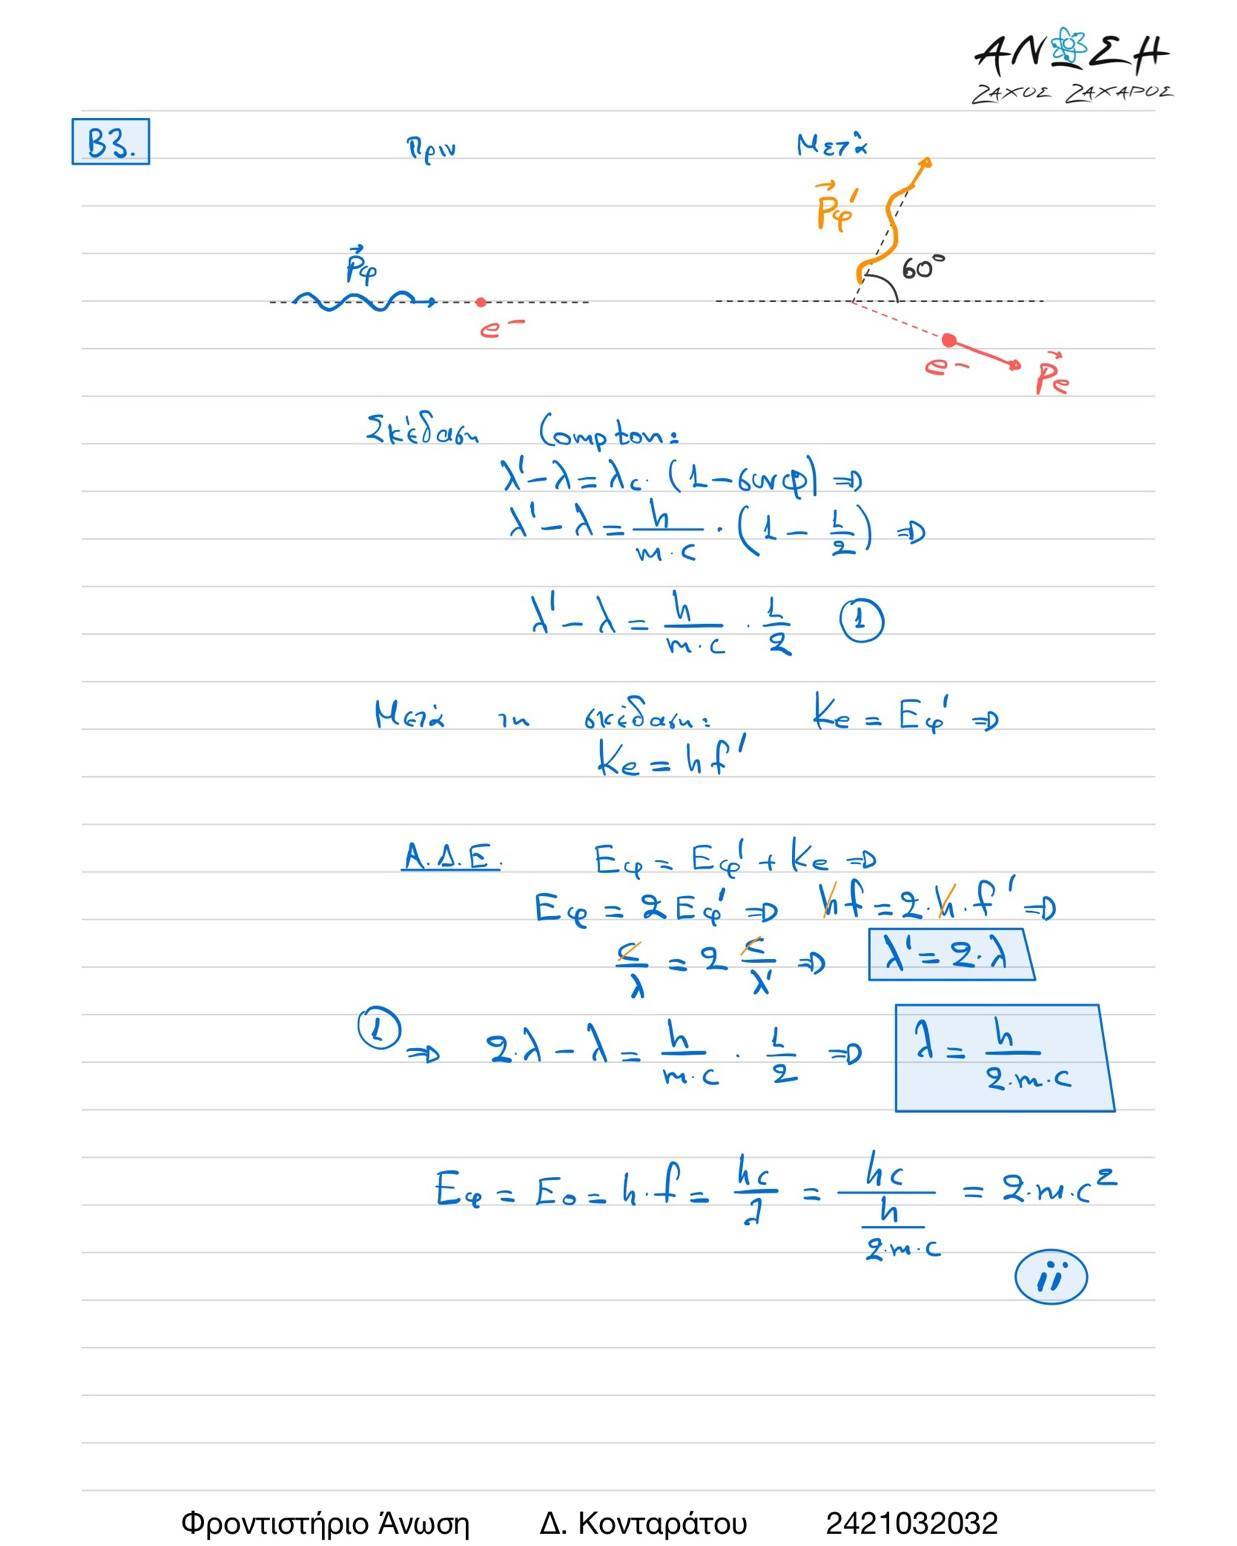 ΑΝΩΣΗ
ΖΑΧΟΣ ΖΑΧΑΡΟΣ
Β3.
Πριν
Μετά
P⃗φ
e⁻
P⃗φ'
60°
e⁻
P⃗e
Σκέδαση Compton:
λ' - λ = λc · (1 - συνφ) ⇒
λ' - λ = h/(m·c) · (1 - 1/2) ⇒
λ' - λ = h/(m·c) · 1/2 ①
Μετά τη σκέδαση: Ke = Eφ' ⇒
Ke = hf'
Α.Δ.Ε. Eφ = Eφ' + Ke ⇒
Eφ = 2Eφ' ⇒ hf = 2·h·f' ⇒
c/λ = 2 c/λ' ⇒ λ' = 2·λ
① ⇒ 2·λ - λ = h/(m·c) · 1/2 ⇒ λ = h/(2·m·c)
Eφ = E0 = h·f = hc/λ = hc/(h/(2·m·c)) = 2·m·c²
ii
Φροντιστήριο Άνωση Δ. Κονταράτου 2421032032